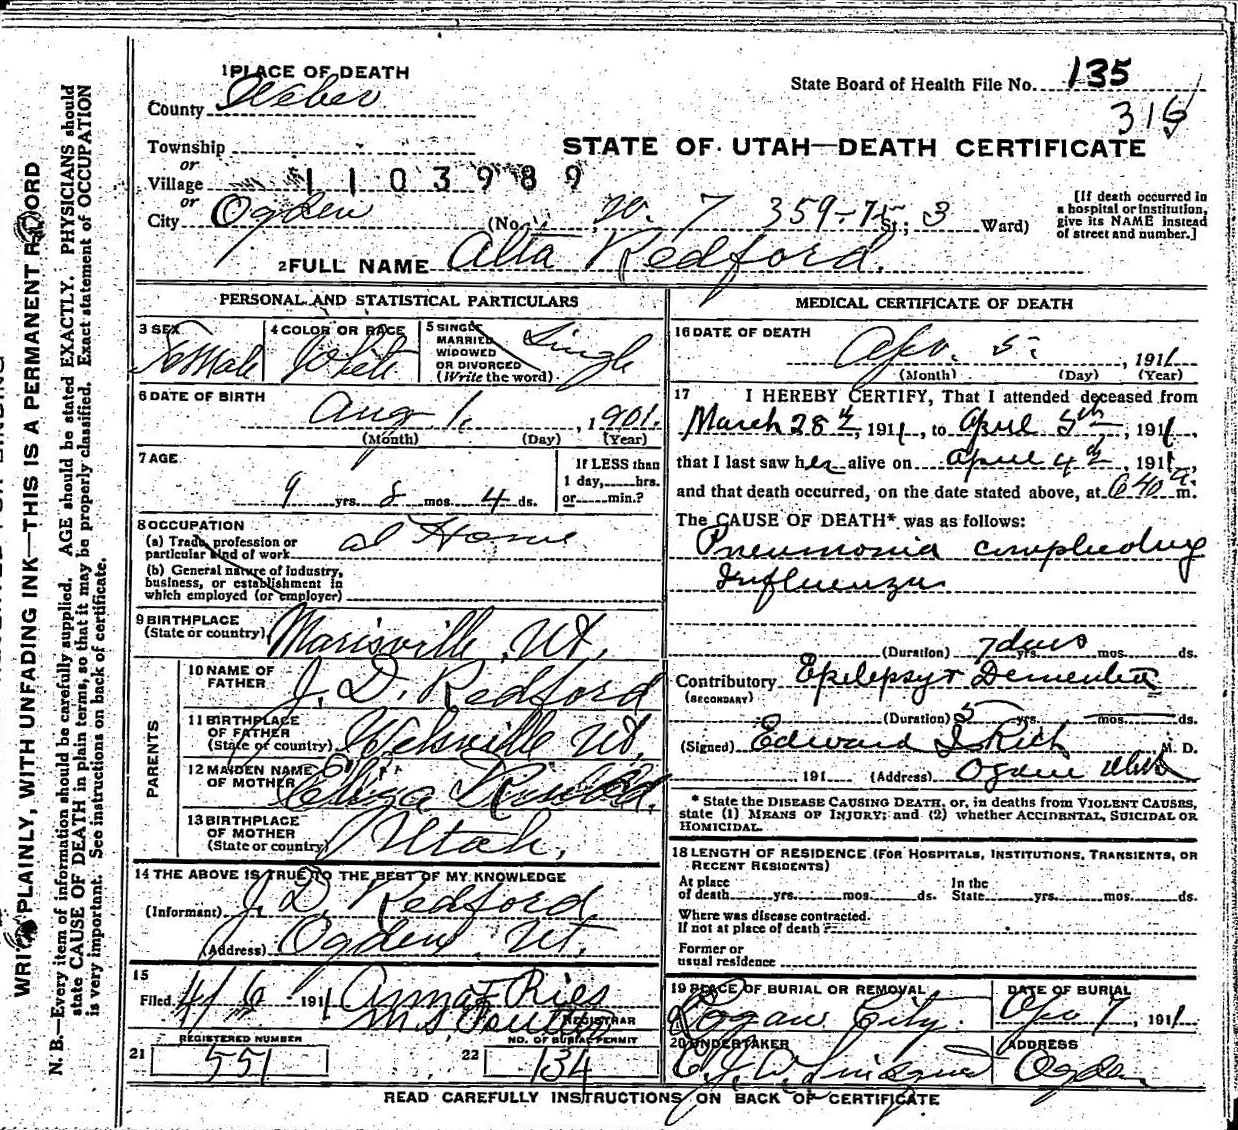 WRITE PLAINLY, WITH UNFADING INK—THIS IS A PERMANENT RECORD
N. B.—Every item of information should be carefully supplied. AGE should be stated EXACTLY. PHYSICIANS should
state CAUSE OF DEATH in plain terms, so that it may be properly classified. Exact statement of OCCUPATION
is very important. See instructions on back of certificate.
1 PLACE OF DEATH
County Weber
State Board of Health File No. 135
315
Township
or
STATE OF UTAH—DEATH CERTIFICATE
Village 1103989
or
City Ogden (No. W. 7 359-7th St.; 3 Ward)
[If death occurred in
a hospital or institution,
give its NAME instead
of street and number.]
2 FULL NAME Alta Redford.
PERSONAL AND STATISTICAL PARTICULARS
3 SEX Female
4 COLOR OR RACE White
5 SINGLE
MARRIED
WIDOWED
OR DIVORCED
(Write the word) Single
6 DATE OF BIRTH
Aug 1, 1901.
(Month) (Day) (Year)
7 AGE
9 yrs. 8 mos. 4 ds.
If LESS than
1 day, hrs.
or min.?
8 OCCUPATION
(a) Trade, profession or
particular kind of work at Home
(b) General nature of industry,
business, or establishment in
which employed (or employer)
9 BIRTHPLACE
(State or country) Marisville, Ut,
PARENTS
10 NAME OF
FATHER J. D. Redford
11 BIRTHPLACE
OF FATHER
(State or country) Welsville Ut,
12 MAIDEN NAME
OF MOTHER Eliza
13 BIRTHPLACE
OF MOTHER
(State or country) Utah,
14 THE ABOVE IS TRUE TO THE BEST OF MY KNOWLEDGE
(Informant) J. D. Redford
(Address) Ogden, Ut.
15
Filed 4/6 1911 Anna F Ries
REGISTRAR
REGISTERED NUMBER
21 551
NO. OF BURIAL PERMIT
22 134
MEDICAL CERTIFICATE OF DEATH
16 DATE OF DEATH
Apr. 5, 1911
(Month) (Day) (Year)
17 I HEREBY CERTIFY, That I attended deceased from
March 28th, 1911, to April 5th, 1911,
that I last saw her alive on April 4th, 1911,
and that death occurred, on the date stated above, at 6 40 a. m.
The CAUSE OF DEATH* was as follows:
Pneumonia complicating
Influenza
(Duration) 7 days yrs. mos. ds.
Contributory Epilepsy & Dementia
(SECONDARY)
(Duration) 5 yrs. mos. ds.
(Signed) Edward I Rich M. D.
191 (Address) Ogden Utah
* State the DISEASE CAUSING DEATH, or, in deaths from VIOLENT CAUSES,
state (1) MEANS OF INJURY; and (2) whether ACCIDENTAL, SUICIDAL OR
HOMICIDAL.
18 LENGTH OF RESIDENCE (FOR HOSPITALS, INSTITUTIONS, TRANSIENTS, OR
RECENT RESIDENTS)
At place
of death yrs. mos. ds.
In the
State yrs. mos. ds.
Where was disease contracted.
If not at place of death?
Former or
usual residence
19 PLACE OF BURIAL OR REMOVAL
Logan City.
DATE OF BURIAL
Apr 7, 1911
20 UNDERTAKER
ADDRESS
Ogden
READ CAREFULLY INSTRUCTIONS ON BACK OF CERTIFICATE